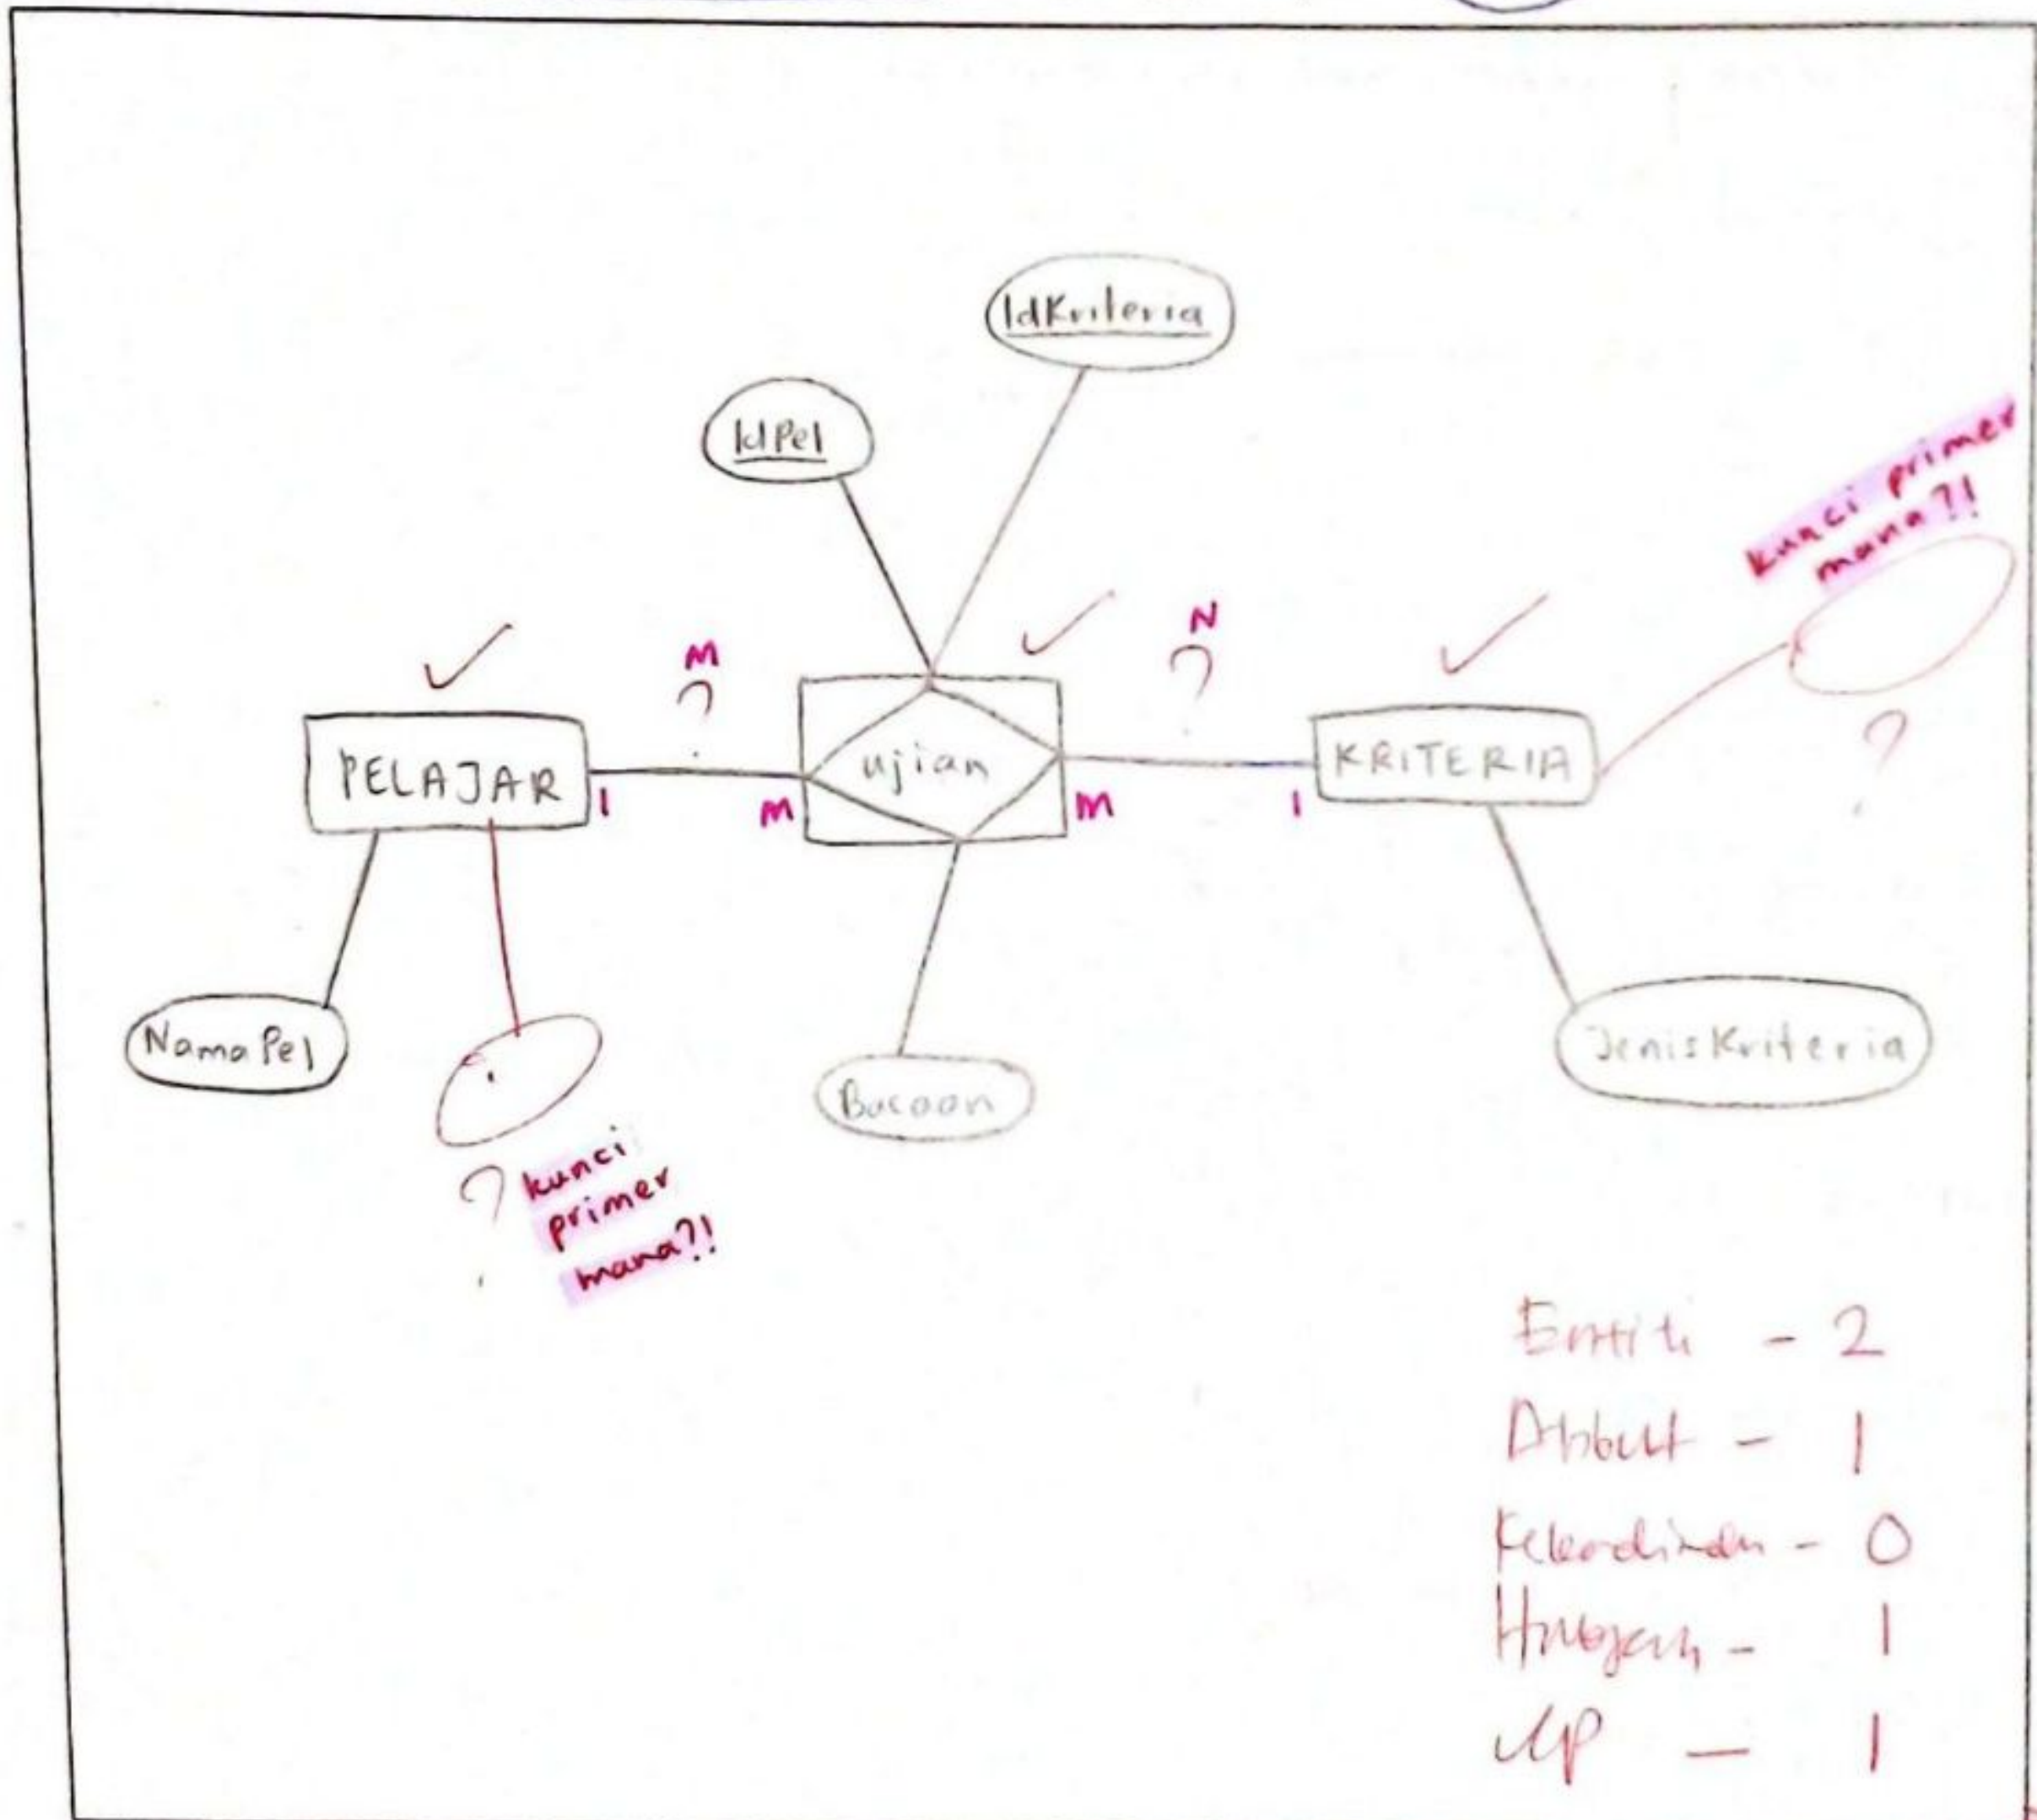 IdKriteria
IdPel
kunci primer
mana?!
M
?
N
?
PELAJAR
1
M
ujian
M
1
KRITERIA
?
NamaPel
Bacaan
JenisKriteria
?
kunci
primer
mana?!
Entiti - 2
Atribut - 1
Kekardinalan - 0
Hubungan - 1
KP - 1